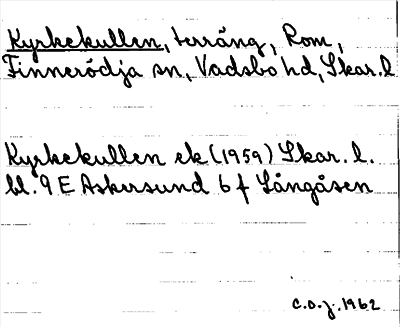 Kyrkekullen, terräng, Rom,
Finnerödja sn, Vadsbo hd, Skar.l
Kyrkekullen ek (1959) Skar. l.
bl. 9 E Askersund 6 f Långåsen
C.O.J. 1962